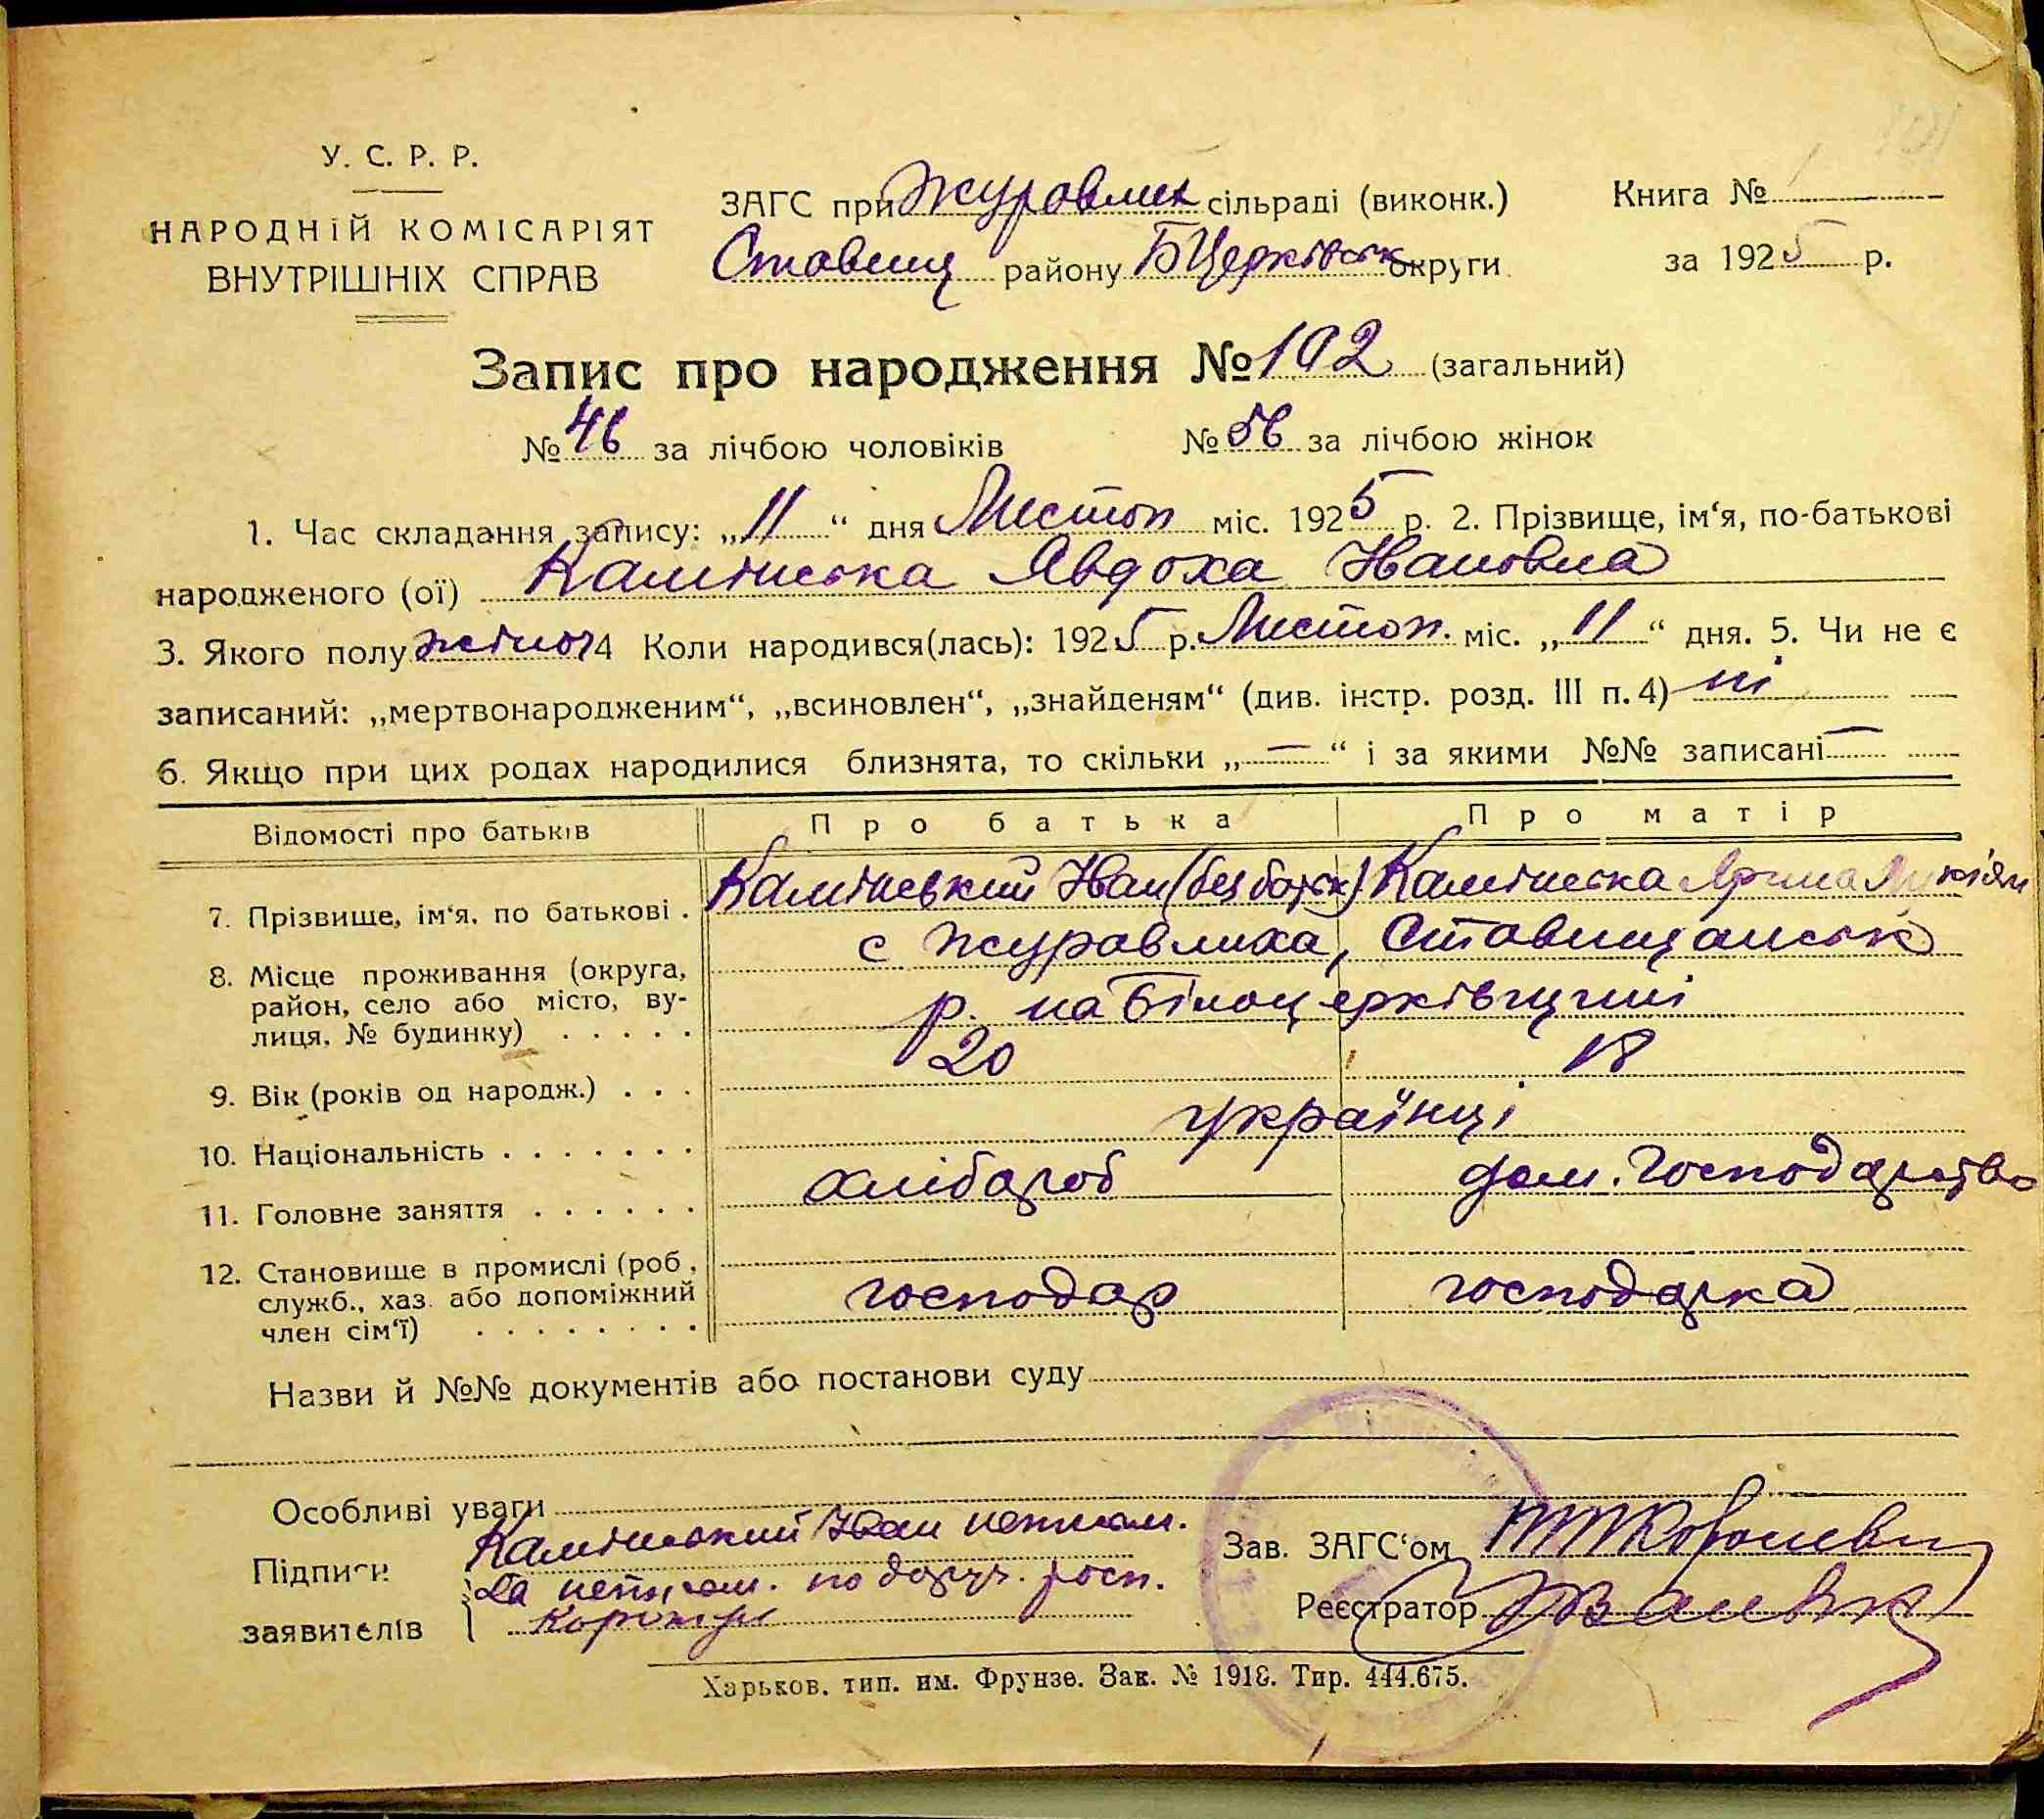 У. С. Р. Р.
НАРОДНІЙ КОМІСАРІЯТ
ВНУТРІШНІХ СПРАВ
ЗАГС при Журавлих сільраді (виконк.)
Ставищ району БЦерківськ округи
Книга №
за 1925 р.
Запис про народження № 102 (загальний)
№ 46 за лічбою чоловіків № 56 за лічбою жінок
1. Час складання запису: „11“ дня Листоп міс. 1925 р. 2. Прізвище, ім‘я, по-батькові
народженого (ої) Камінська Явдоха Івановна
3. Якого полу жіноч 4 Коли народився(лась): 1925 р. Листоп. міс. „11“ дня. 5. Чи не є
записаний: „мертвонародженим“, „всиновлен“, „знайденям“ (див. інстр. розд. III п. 4) ні
6. Якщо при цих родах народилися близнята, то скільки „—“ і за якими №№ записані —
Відомості про батьків
Про батька
Про матір
7. Прізвище, ім‘я, по батькові .
Камінський Іван (без батьк)
Камінська Ярина Лукіян
8. Місце проживання (округа,
район, село або місто, ву-
лиця, № будинку) . . . . .
с Журавлиха, Ставищанськ
р. на Білоцерківщині
9. Вік (років од народж.) . . .
20
18
10. Національність . . . . . . .
українці
11. Головне заняття . . . . . .
хлібороб
дом. господарство
12. Становище в промислі (роб.,
служб., хаз. або допоміжний
член сім‘ї) . . . . . . . .
господар
господарка
Назви й №№ документів або постанови суду
Особливі уваги
Підписи
заявителів
Камінський Іван неписьм.
за неписьм. по доруч. росп.
Зав. ЗАГС‘ом
Реєстратор
Харьков. тип. им. Фрунзе. Зак. № 1918. Тир. 444.675.